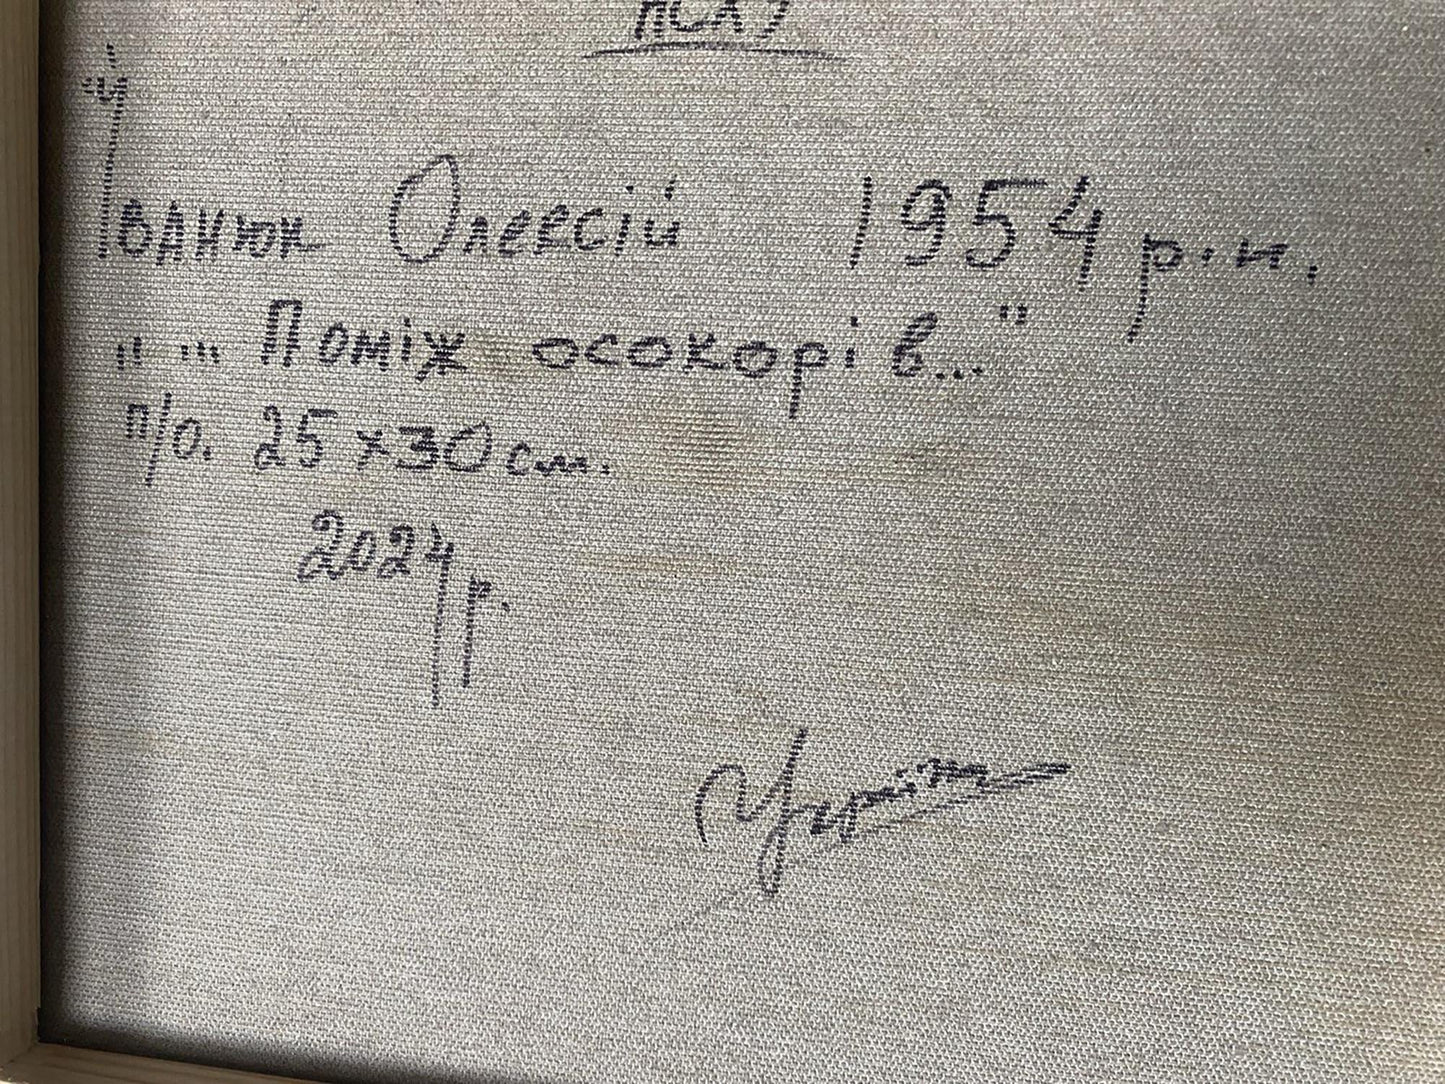 НСХУ
Іванюк Олексій 1954 р.н.
„ ... Поміж осокорів..."
п/о. 25х30см.
2024р.